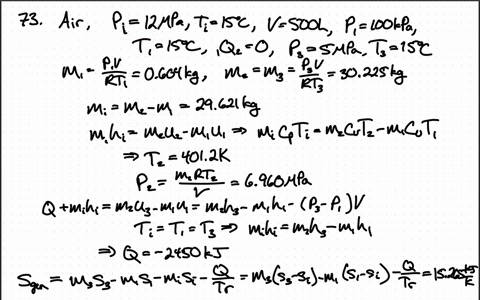 73. Air, Pᵢ=12MPa, Tᵢ=15°C, V=500L, P₁=100kPa,
T₁=15°C, ₁Q₂=0, P₃=5MPa, T₃=15°C
m₁=P₁V/RT₁=0.604kg, m₂=m₃=P₃V/RT₃=30.225kg
mᵢ=m₂-m₁=29.621kg
mᵢhᵢ=m₂u₂-m₁u₁ ⇒ mᵢCpTᵢ=m₂CvT₂-m₁CvT₁
⇒ T₂=401.2K
P₂=m₂RT₂/V=6.960MPa
Q+mᵢhᵢ=m₂u₃-m₁u₁=m₂h₃-m₁h₁-(P₃-P₁)V
Tᵢ=T₁=T₃ ⇒ mᵢhᵢ=m₂h₃-m₁h₁
⇒ Q=-2450kJ
Sgen=m₃S₃-m₁S₁-mᵢSᵢ-Q/Tr=m₃(S₃-Sᵢ)-m₁(S₁-Sᵢ)-Q/Tr=15.265kJ/K